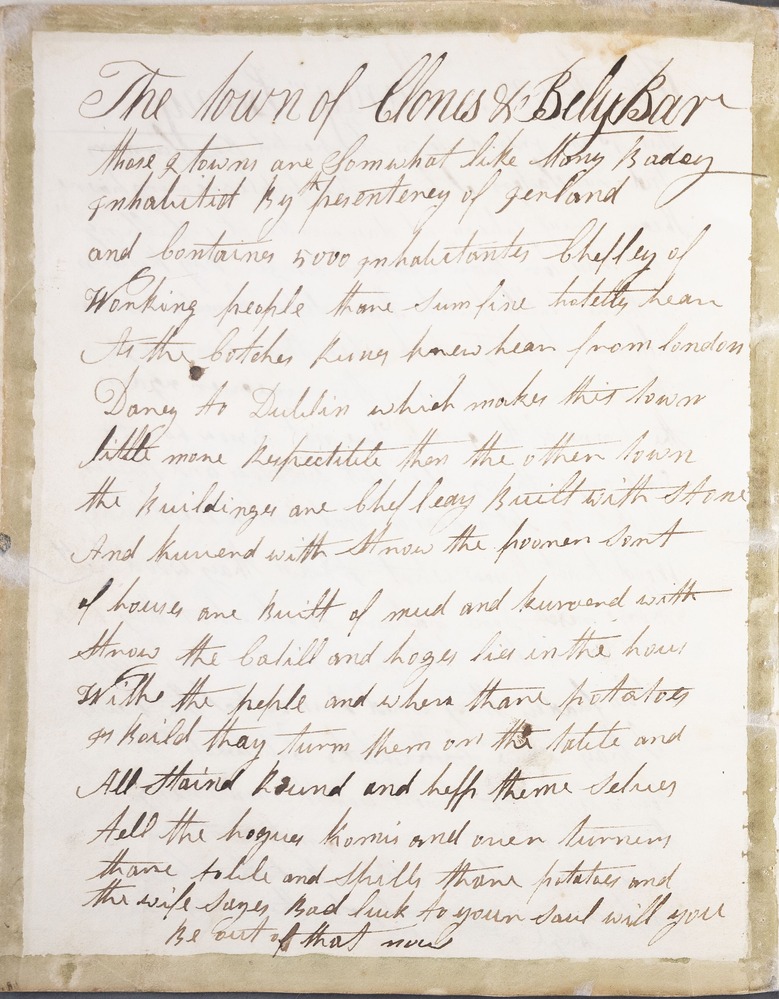 The town of Clones & Bely Bar
those 2 towns are Somwhat like Mony Badey
Inhabitid By the pesenterey of Ierland
and Containes 5000 Inhabitantes Cheffley of
Working people thare sum fine hotells hear
As the Cotches Runes threw hear from london
Darey to Dublin which makes this town
little more Respectible then the other town
the Buildinges are Chefleay Built with Stone
And kuverd with Straw the poorer sort
of houses are Built of mud and kurverd with
Straw the Catill and hoges lies in the hous
With the peple and when thare potatoes
Is Boild thay turn them on the table and
All Staind Round and help theme selves
tell the hogues komis and over turners
thare table and Spills thare potatoes and
the wife sayes Bad luck to your saul will you
Be out of that now